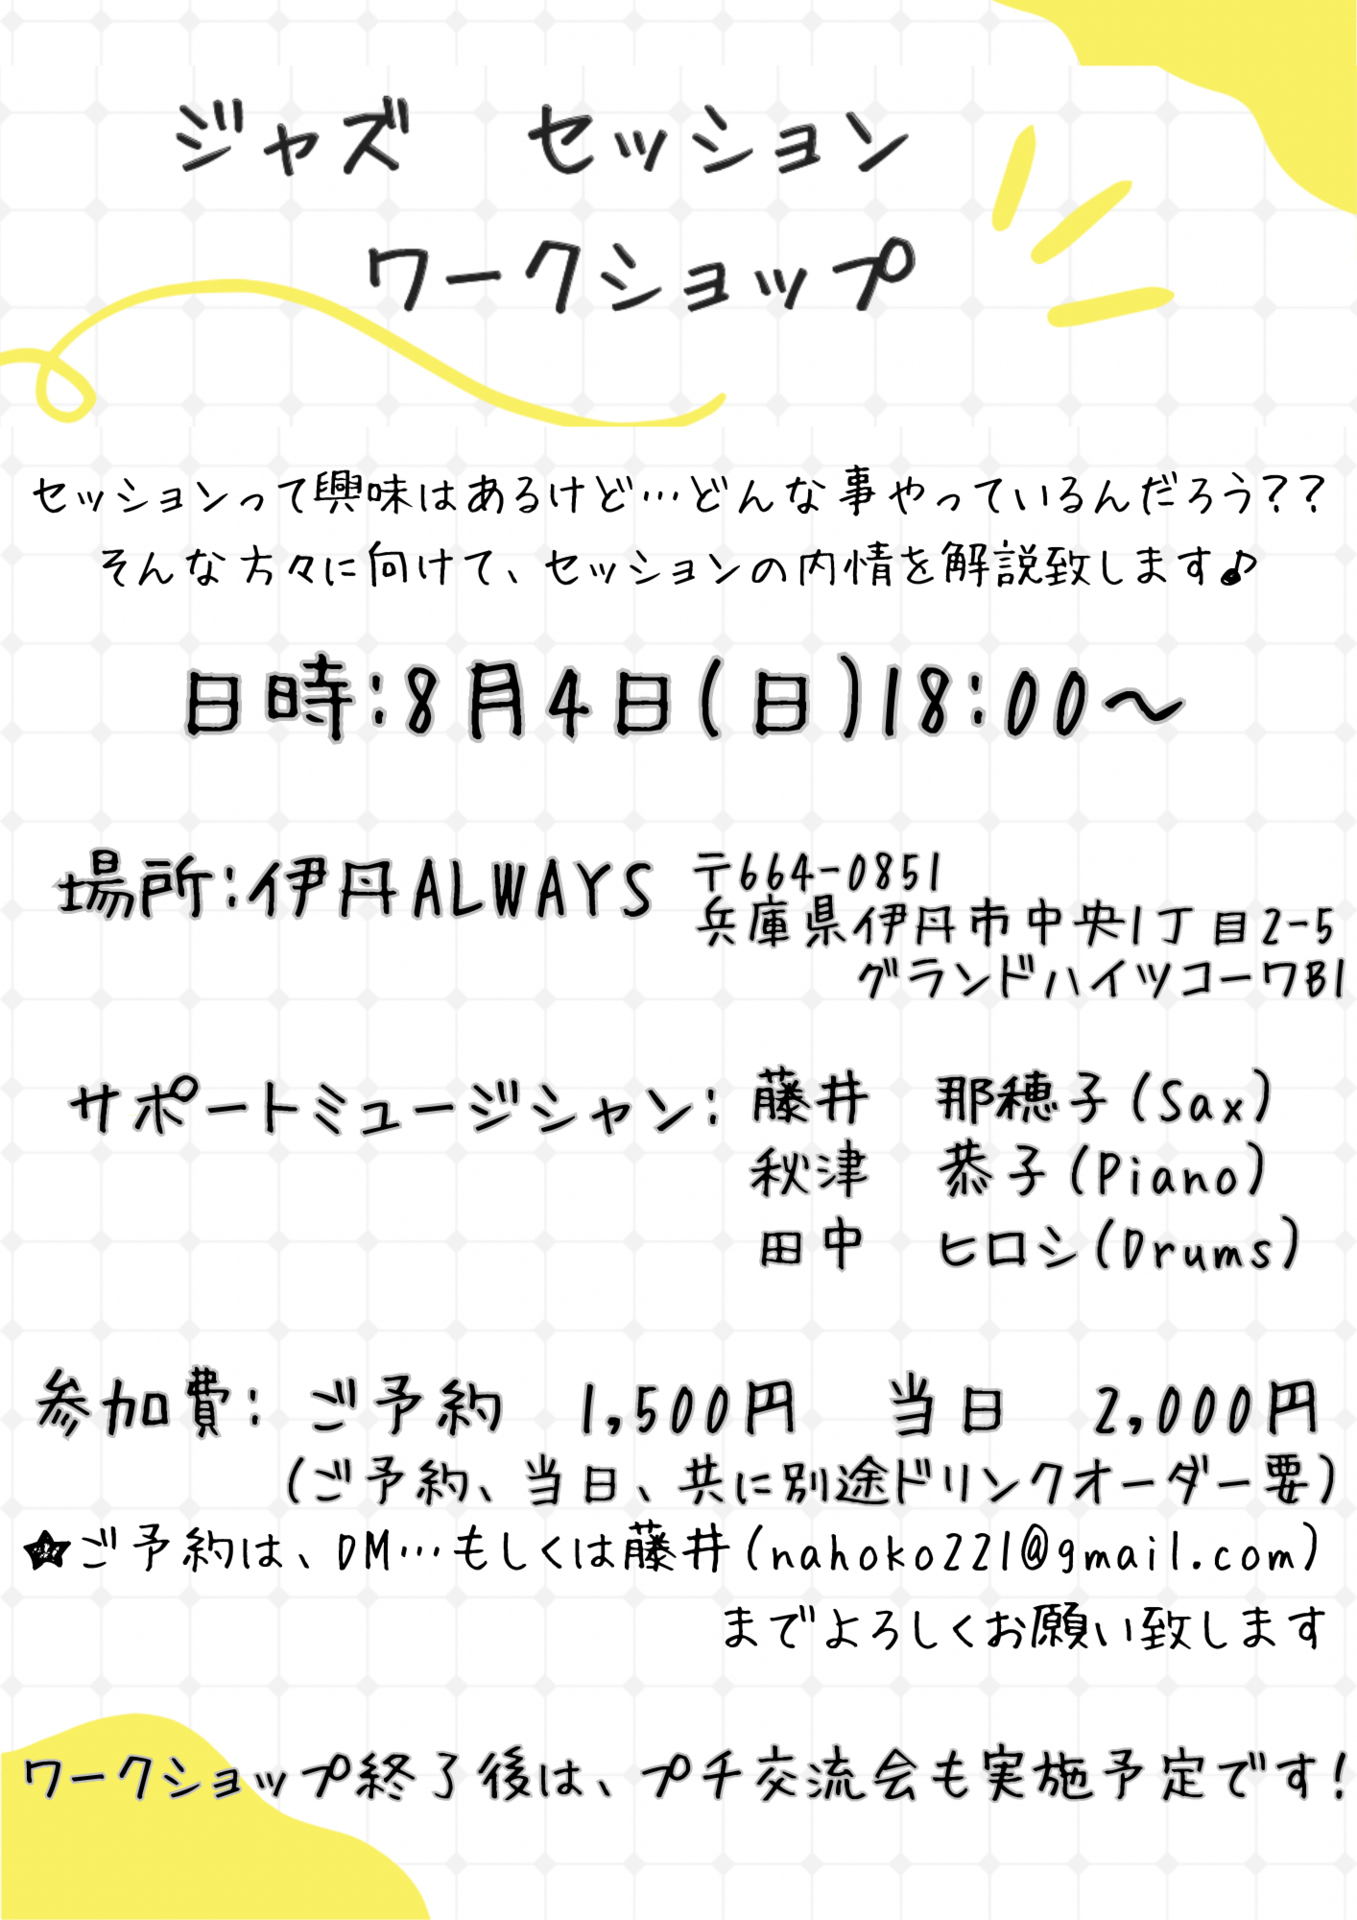 ジャズ　セッション
ワークショップ
セッションって興味はあるけど…どんな事やっているんだろう??
そんな方々に向けて、セッションの内情を解説致します♪
日時:8月4日(日)18:00〜
場所:伊丹ALWAYS
〒664-0851
兵庫県伊丹市中央1丁目2-5
グランドハイツコーワB1
サポートミュージシャン:
藤井　那穂子(Sax)
秋津　恭子(Piano)
田中　ヒロシ(Drums)
参加費:　ご予約　1,500円　当日　2,000円
(ご予約、当日、共に別途ドリンクオーダー要)
★ご予約は、DM…もしくは藤井(nahoko221@gmail.com)
までよろしくお願い致します
ワークショップ終了後は、プチ交流会も実施予定です!